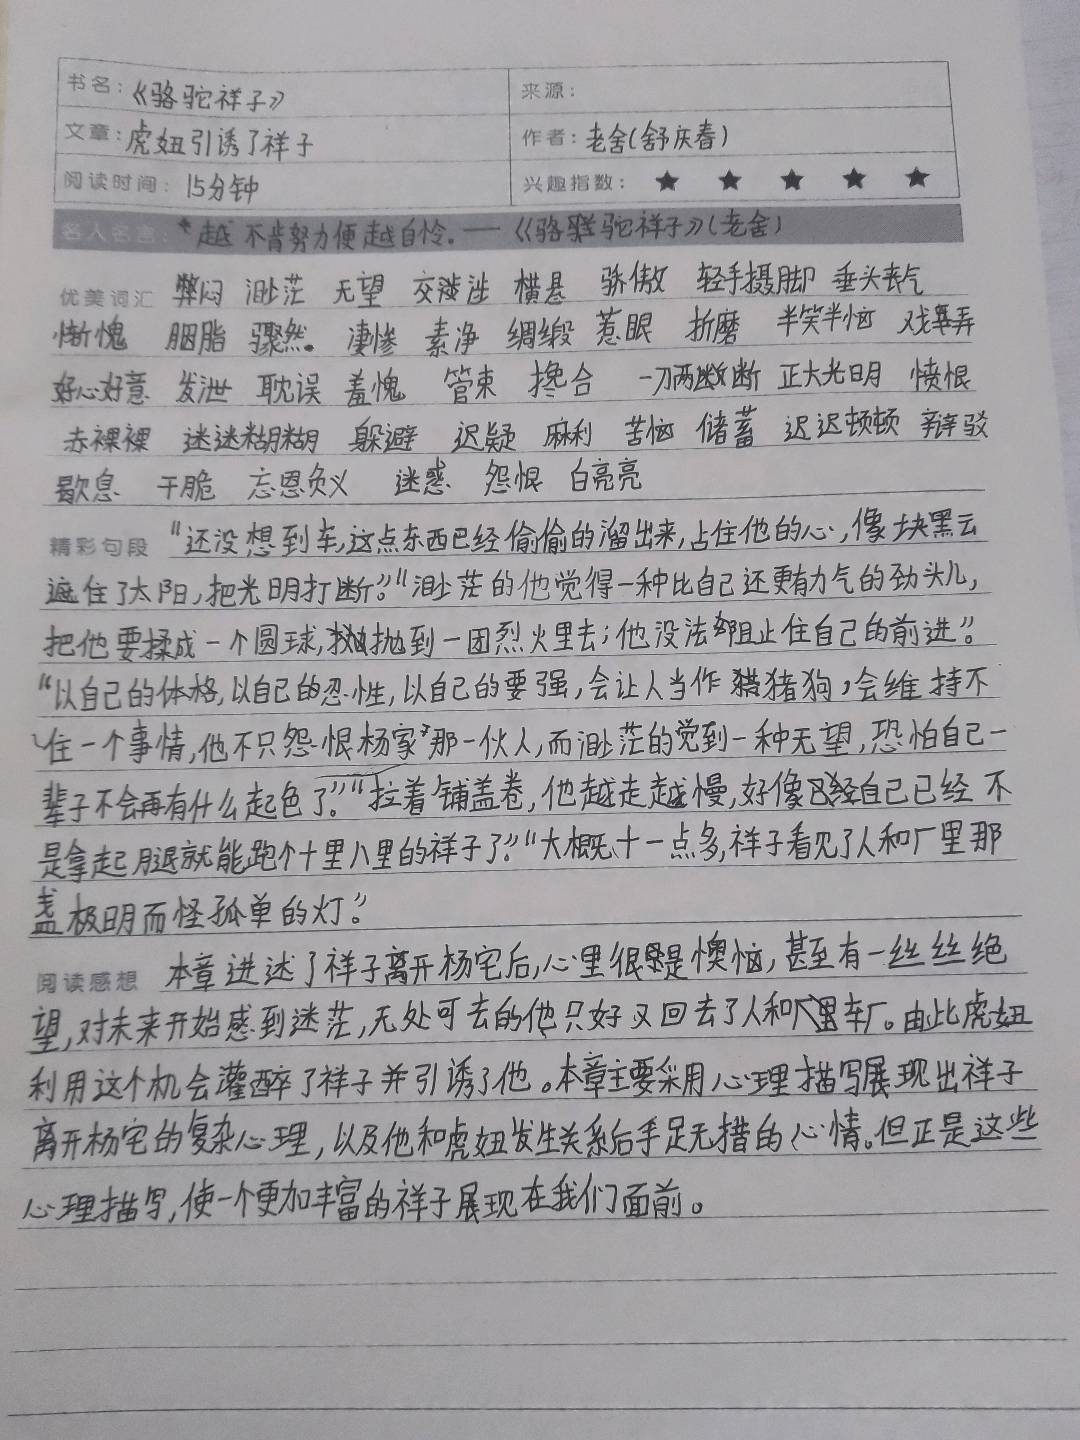 书名：《骆驼祥子》 来源：
文章：虎妞引诱了祥子 作者：老舍（舒庆春）
阅读时间：15分钟 兴趣指数：★ ★ ★ ★ ★
名人名言：“越不肯努力便越自怜。—《骆驼祥子》（老舍）
优美词汇 弊闷 渺茫 无望 交涉 横悬 骄傲 轻手摄脚 垂头丧气
惭愧 胭脂 骤然。 凄惨 素净 绸缎 惹眼 折磨 半笑半恼 戏弄
好心好意 发泄 耽误 羞愧 管束 搀合 一刀两断 正大光明 愤恨
赤裸裸 迷迷糊糊 躲避 迟疑 麻利 苦恼 储蓄 迟迟顿顿 辩驳
歇息 干脆 忘恩负义 迷惑 怨恨 白亮亮
精彩句段 “还没想到车，这点东西已经偷偷的溜出来，占住他的心，像块黑云
遮住了太阳，把光明打断。”“渺茫的他觉得一种比自己还更有力气的劲头儿，
把他要揉成一个圆球，抛到一团烈火里去；他没法阻止住自己的前进”。
“以自己的体格，以自己的忍性，以自己的要强，会让人当作猪狗，会维持不
住一个事情，他不只怨恨杨家那一伙人，而渺茫的觉到一种无望，恐怕自己一
辈子不会再有什么起色了。”“拉着铺盖卷，他越走越慢，好像自己已经不
是拿起腿就能跑个十里八里的祥子了。”“大概十一点多，祥子看见了人和厂里那
盏极明而怪孤单的灯。”
阅读感想 本章进述了祥子离开杨宅后，心里很是懊恼，甚至有一丝丝绝
望，对未来开始感到迷茫，无处可去的他只好又回去了人和车厂。由此虎妞
利用这个机会灌醉了祥子并引诱了他。本章主要采用心理描写展现出祥子
离开杨宅的复杂心理，以及他和虎妞发生关系后手足无措的心情。但正是这些
心理描写，使一个更加丰富的祥子展现在我们面前。